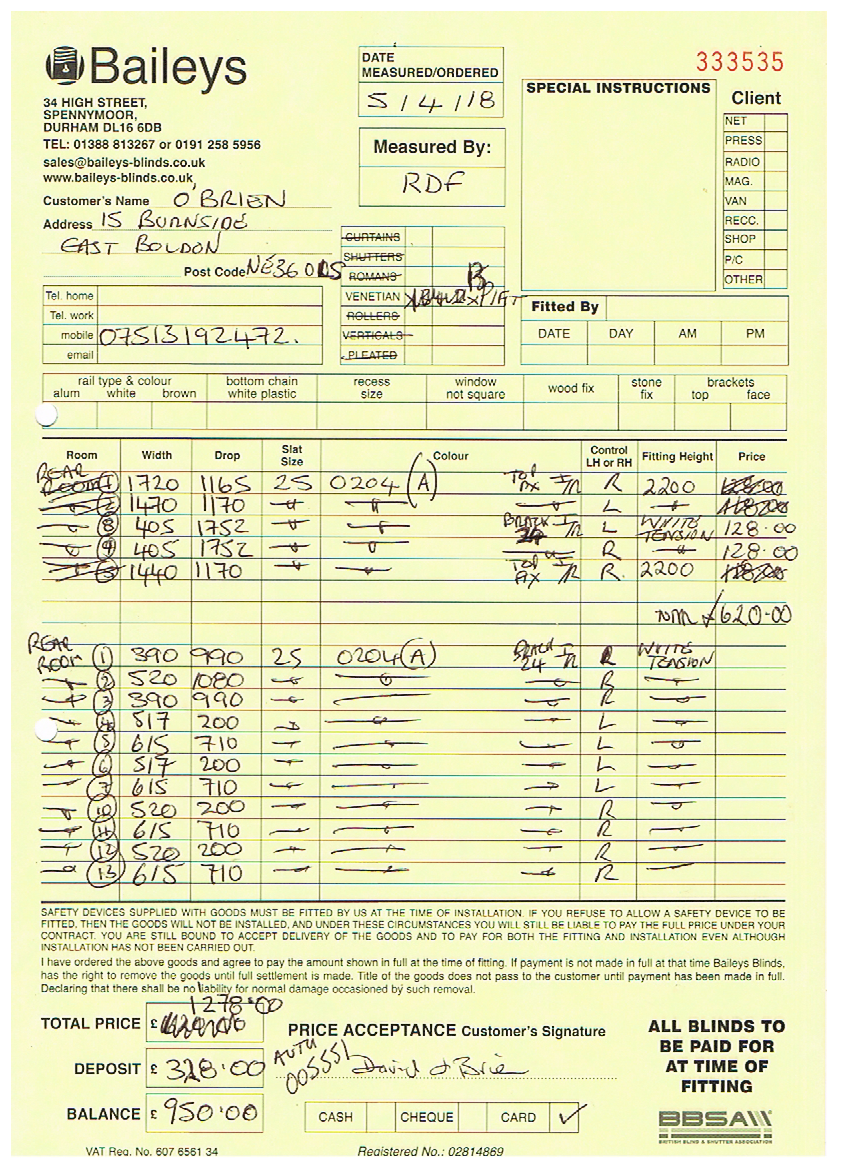 Baileys
34 HIGH STREET,
SPENNYMOOR,
DURHAM DL16 6DB
TEL: 01388 813267 or 0191 258 5956
sales@baileys-blinds.co.uk
www.baileys-blinds.co.uk
DATE
MEASURED/ORDERED
5/4/18
Measured By:
RDF
333535
SPECIAL INSTRUCTIONS
Client
NET
PRESS
RADIO
MAG.
VAN
RECC.
SHOP
P/C
OTHER
Customer's Name O'BRIEN
Address 15 BURNSIDE
EAST BOLDON
Post Code NE36
Tel. home
Tel. work
mobile 07513192472.
email
CURTAINS
SHUTTERS
ROMANS
VENETIAN
ROLLERS
VERTICALS
PLEATED
Fitted By
DATE DAY AM PM
rail type & colour
alum white brown
bottom chain
white plastic
recess
size
window
not square
wood fix
stone
fix
brackets
top face
Room Width Drop Slat Size Colour Control LH or RH Fitting Height Price
REAR ROOM 1 1720 1165 25 0204 (A) TOP R 2200
1470 1170 L
8 405 1752 BLACK L WHITE TENSION 128.00
9 405 1752 R 128.00
1440 1170 TOP R. 2200
620.00
REAR ROOM 1 390 990 25 0204 (A) BLACK 24 R WHITE TENSION
2 520 1080 R
3 390 990 R
4 517 200 L
5 615 710 L
6 517 200 L
7 615 710 L
10 520 200 R
11 615 710 R
12 520 200 R
13 615 710 R
SAFETY DEVICES SUPPLIED WITH GOODS MUST BE FITTED BY US AT THE TIME OF INSTALLATION. IF YOU REFUSE TO ALLOW A SAFETY DEVICE TO BE
FITTED, THEN THE GOODS WILL NOT BE INSTALLED, AND UNDER THESE CIRCUMSTANCES YOU WILL STILL BE LIABLE TO PAY THE FULL PRICE UNDER YOUR
CONTRACT. YOU ARE STILL BOUND TO ACCEPT DELIVERY OF THE GOODS AND TO PAY FOR BOTH THE FITTING AND INSTALLATION EVEN ALTHOUGH
INSTALLATION HAS NOT BEEN CARRIED OUT.
I have ordered the above goods and agree to pay the amount shown in full at the time of fitting. If payment is not made in full at that time Baileys Blinds,
has the right to remove the goods until full settlement is made. Title of the goods does not pass to the customer until payment has been made in full.
Declaring that there shall be no liability for normal damage occasioned by such removal.
TOTAL PRICE £ 1278.00
DEPOSIT £ 328.00
BALANCE £ 950.00
PRICE ACCEPTANCE Customer's Signature
AUTH 005551 David O'Brien
CASH CHEQUE CARD ✓
ALL BLINDS TO
BE PAID FOR
AT TIME OF
FITTING
BBSA
BRITISH BLIND & SHUTTER ASSOCIATION
VAT Reg. No. 607 6561 34
Registered No.: 02814869